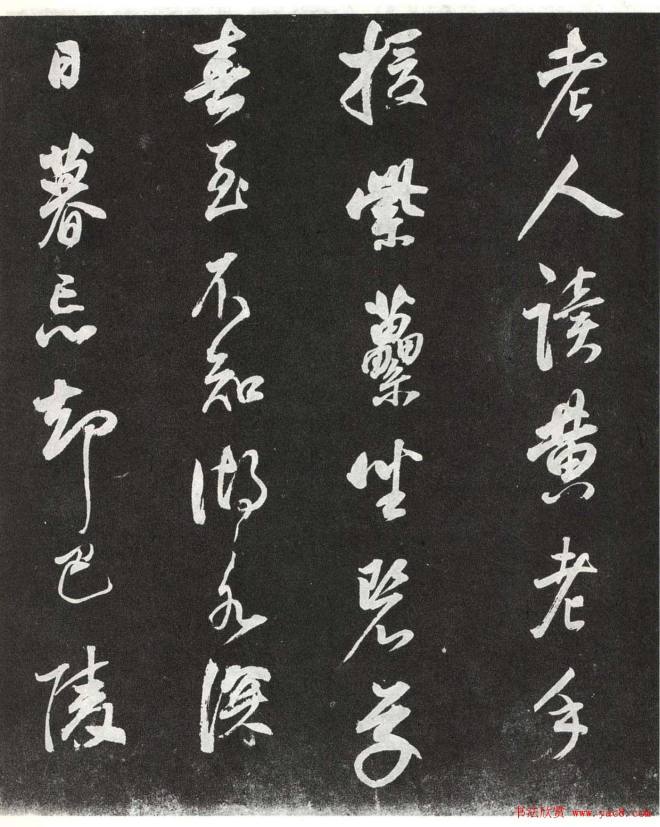 老人讀黄老手
援紫虆坐碧草
春至不知湖水深
日暮忘却巴陵
书法欣赏 www.yac8.com